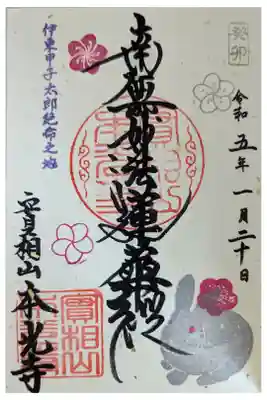 癸卯
令和五年一月二十日
南無妙法蓮華経
伊東甲子太郎絶命之地
實相山
本光寺
實相山